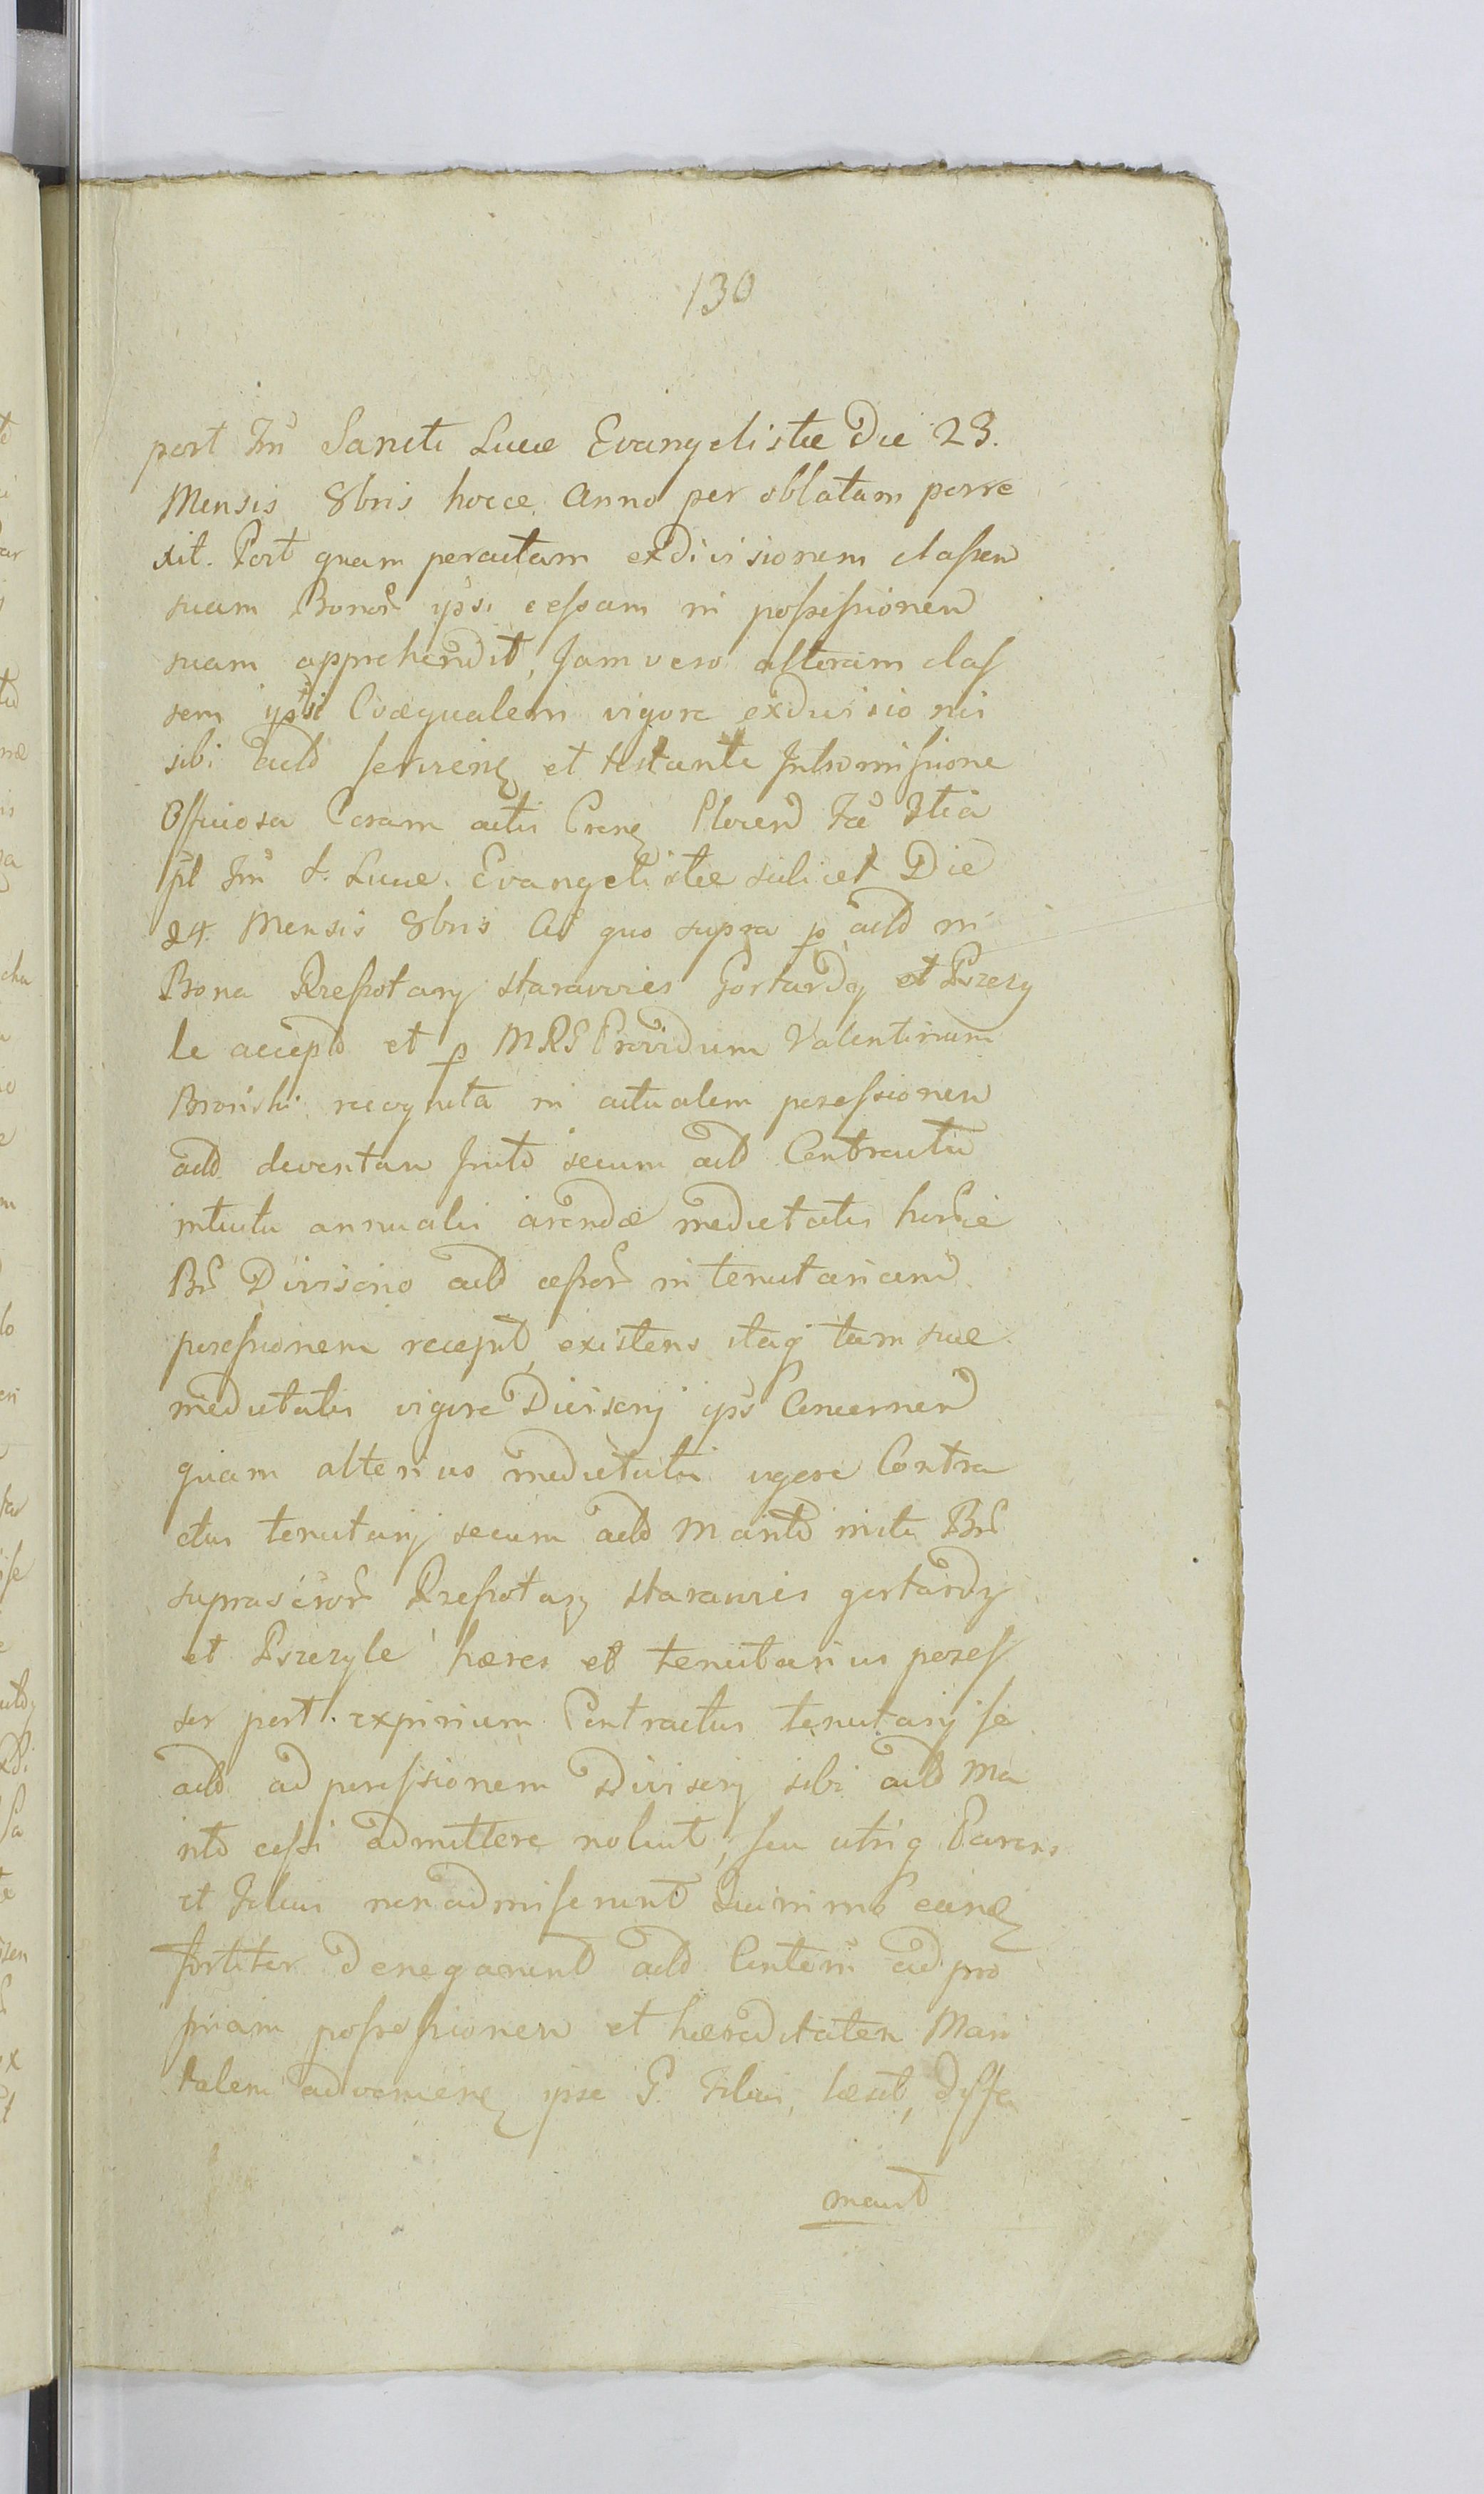 130
post Fm̃ Sancti Lucæ Evangelistæ Die 23.
Mensis 8bris hocce Anno per oblatam porre
xit. Post quam peractam exdivisionem classem
suam Bonor̃ ipsi cessam in possessionem
suam apprehendit, Jam vero alteram clas
sem ipsi Coæqualem vigore exdivisionis
sibi actõ servien et testante Intromissione
Officiosa Coram actis Cren Plocen Fã 3tia
pt Fm̃ S. Lucæ Evangelistæ scilicet Die
24. Mensis 8bris Aõ quo supra p actõ in
Bona Rzeszotary Stararvies Gortardy et Pszczy
le acceptõ et p MRG Providum Valentinum
Broński recognita in actualem possessionem
actõ devent Initõ secum actõ Contractu
intuitu annualis arendæ medietatis
Br̃ Divisorio actõ cessor̃ in tenutariam
possessionem recepit, existens itaq tam suæ
medietatis vigore Divisorij ips Concernen
quam alterius medietatis vigore Contra
ctus tenutarij secum actõ Maritõ initi Br̃
suprascr̃or̃ Rzeszotary Stararvies gortardy
et Pszczyle hæres et tenutarius posses
sor post expirium Contractus tenutarij se
actõ ad possessionem Divisorij sibi actõ Ma
ritõ cessi admittere noluit, seu utriq Parens
et Filius non admiserunt Quinimo ean
fortiter Denegarunt actõ ad pro
priam possessionem et hæreditatem Mari
talem advenien ipse G. Filius, læsit, Diffa
mavit